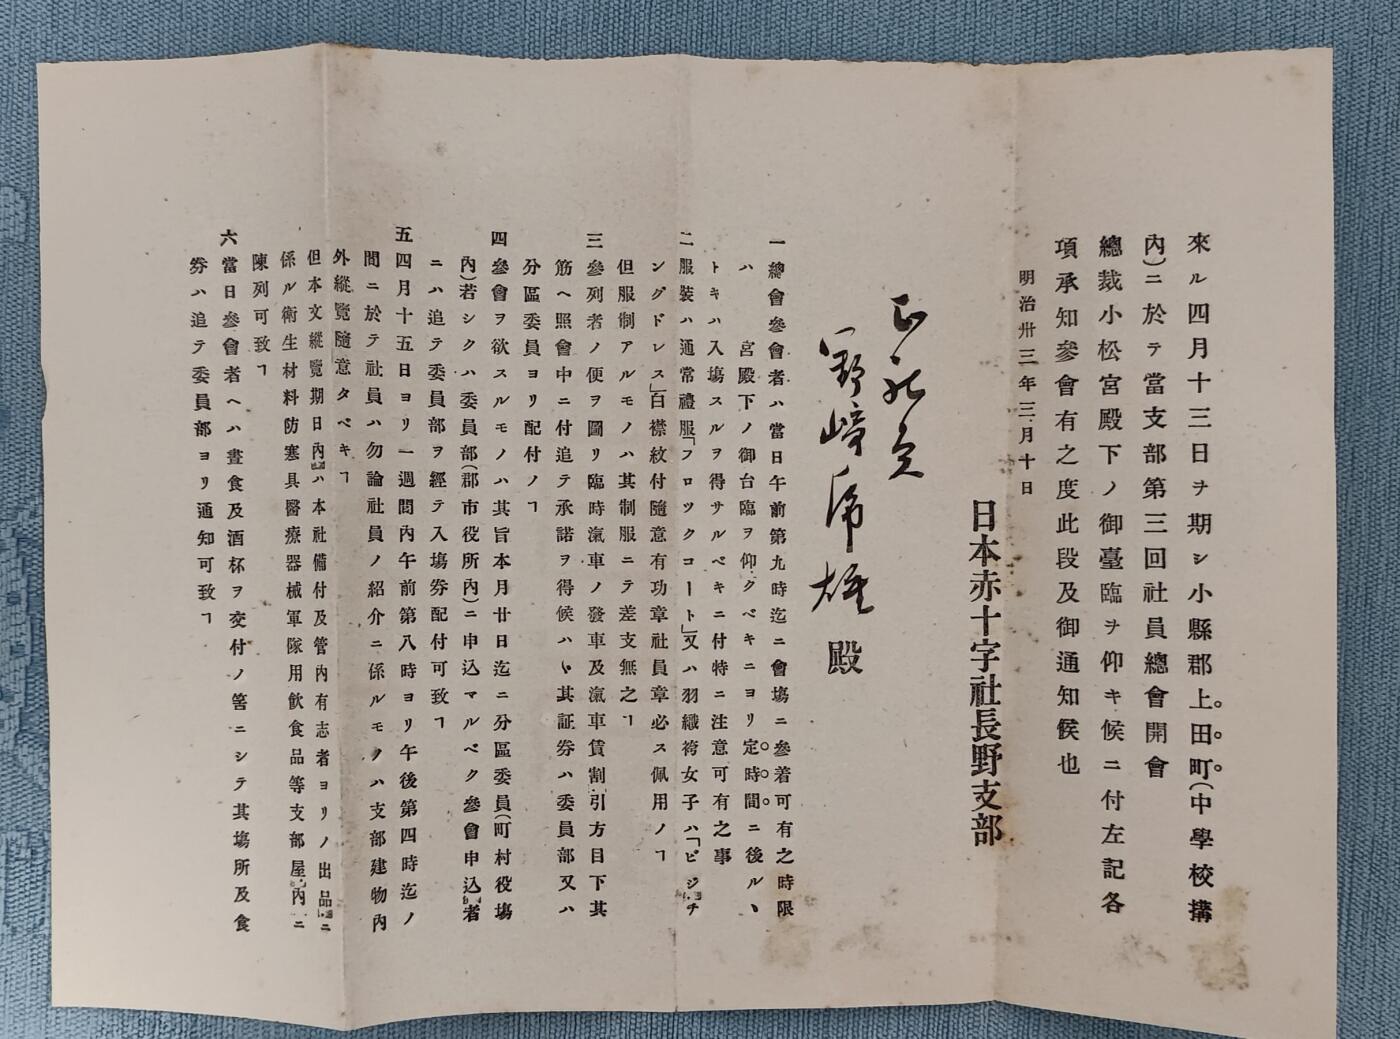 來ル四月十三日ヲ期シ小縣郡上田町(中學校搆
內)ニ於テ當支部第三回社員總會開會
總裁小松宮殿下ノ御臺臨ヲ仰キ候ニ付左記各
項承知參會有之度此段及御通知候也
明治卅三年三月十日
日本赤十字社長野支部
正社員
野﨑庸雄殿
一總會參會者ハ當日午前第九時迄ニ會塲ニ參着可有之時限
ハ 宮殿下ノ御台臨ヲ仰クベキニヨリ定時間ニ後ルヽ
トキハ入塲スルヲ得サルベキニ付特ニ注意可有之事
二服裝ハ通常禮服「フロツクコート」又ハ羽織袴女子ハ「ビジチ
ングドレス」白襟紋付隨意有功章社員章必ス佩用ノヿ
但服制アルモノハ其制服ニテ差支無之ヿ
三參列者ノ便ヲ圖リ臨時滊車ノ發車及滊車賃割引方目下其
筋ヘ照會中ニ付追テ承諾ヲ得候ハヽ其証券ハ委員部又ハ
分區委員ヨリ配付ノヿ
四參會ヲ欲スルモノハ其旨本月廿日迄ニ分區委員(町村役塲
內)若シクハ委員部(郡市役所內)ニ申込マルベク參會申込者
ニハ追テ委員部ヲ經テ入塲券配付可致ヿ
五四月十五日ヨリ一週間內午前第八時ヨリ午後第四時迄ノ
間ニ於テ社員ハ勿論社員ノ紹介ニ係ルモノハ支部建物內
外縱覽隨意タベキヿ
但本文縱覽期日內ハ本社備付及管內有志者ヨリノ出品ニ
係ル衛生材料防寒具醫療器械軍隊用飮食品等支部屋內ニ
陳列可致ヿ
六當日參會者ヘハ晝食及酒杯ヲ交付ノ筈ニシテ其塲所及食
券ハ追テ委員部ヨリ通知可致ヿ